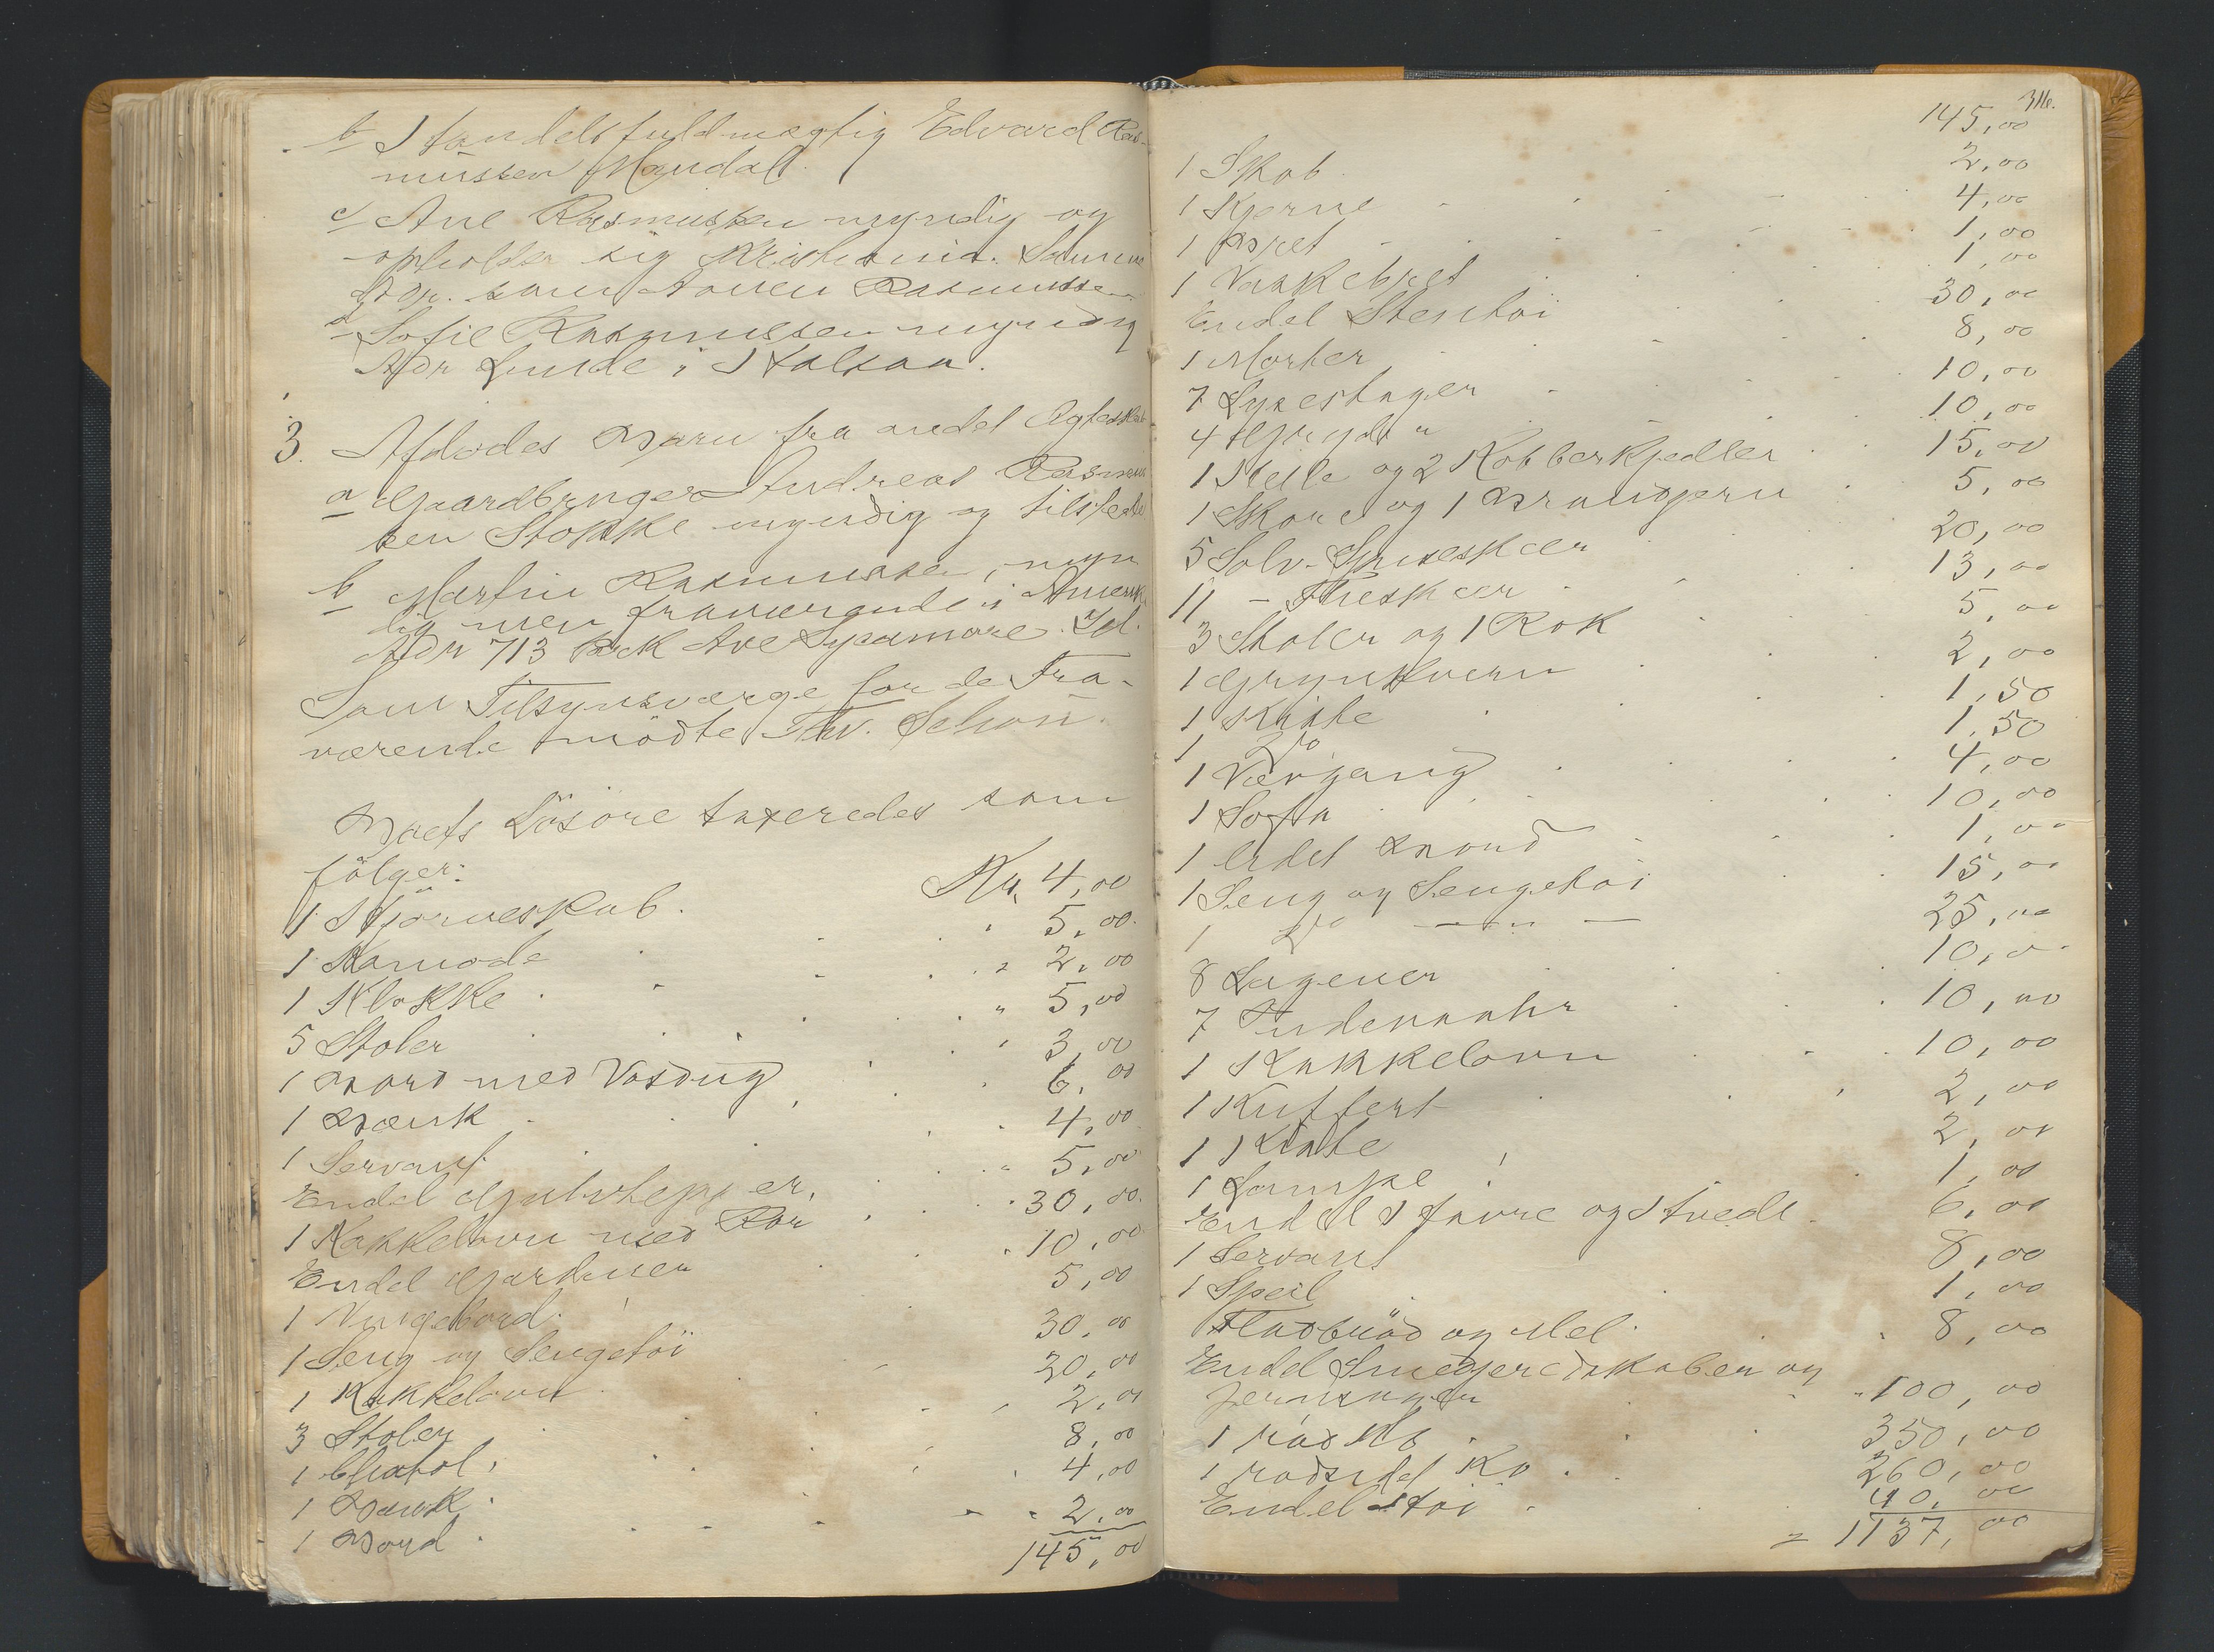 b Handelsfuldmægtig Edvard Ras-
mussen Mandal.
c Ane Rasmussen myndig og
opholder sig Kristiania. Samme
Adr. som Rasmussen
d Sofie Rasmussen myndig
Adr Lunde i Halsaa.
3. Afdødes Barn fra andet Ægteskab
a Gaardbruger Andreas Rasmus
sen Stokke myndig og tilstede
b Martin Rasmussen, myn
dig men fraværende i Amerika
Adr 713 Park Ave Sycamore. Ill.
Som Tilsynsværge for de Fra-
værende mødte Thv. Schøn.
Boets Løsøre taxeredes som
følger:
1 Hjørneskab. Kr. 4,00
1 Komode " 5,00
1 Klokke " 2,00
5 Stoler " 5,00
1 Bord med Voxdug " 3,00
1 Bænk 6,00
1 Servant 4,00
Endel Gulvtepper. " 5,00
1 Kakkelovn med Rør 30,00
Endel Gardiner 10,00
1 Vingebord. 5,00
1 Seng og Sengetöi 30,00
1 Kakkelovn 20,00
3 Stoler 2,00
1 Chatol. 8,00
1 Bænk. 4,00
1 Bord. 2,00
145,00
316.
145,00
1 Skab 2,00
1 Kjerne 4,00
1 Bret 1,00
1 Vaskebret 1,00
Endel Stentöi 30,00
1 Morter 8,00
7 Lysestager 10,00
4 Gryder 10,00
1 Helle og 2 Kobberkjedler 15,00
1 Skore og 1 Brandjern 5,00
5 Sølv-Spiseskeer 20,00
11 - Theskeer 13,00
3 Stoler og 1 Rok 5,00
1 Grynkvern 2,00
1 Kiste 1,50
1 Do 1,50
1 Vævgang 4,00
1 Sofa 10,00
1 lidet Bord 1,00
1 Seng og Sengetöi 15,00
1 Do — " — 25,00
8 Lagener 10,00
7 Pudevaahr 10,00
1 Kakkelovn 10,00
1 Kuffert 2,00
1 Kiste 2,00
1 Lampe 1,00
Endel Havre og Hvede 6,00
1 Servant 8,00
1 Speil 1,00
Fladbrød og Mel. 8,00
Endel Smedjeredskaber og
Jernsager 100,00
1 rød Ko 350,00
1 rødsidet Ko 260,00
Endel Höi 40,00
= 1137,00